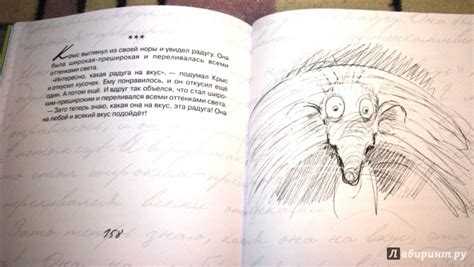 ***
Крыс выглянул из своей норы и увидел радугу. Она
была широкая-преширокая и переливалась всеми
оттенками света.
«Интересно, какая радуга на вкус», — подумал Крыс
и откусил кусочек. Ему понравилось, и он откусил ещё
один. А потом ещё. И вдруг так объелся, что стал широ-
ким-прешироким и переливался всеми оттенками света.
— Зато теперь знаю, какая она на вкус, эта радуга! Она
на любой и всякий вкус подойдёт!
стал широким-
переливался всеми оттенками
Зато теперь знаю, какая она на вкус, эта
158
Лабиринт.ру